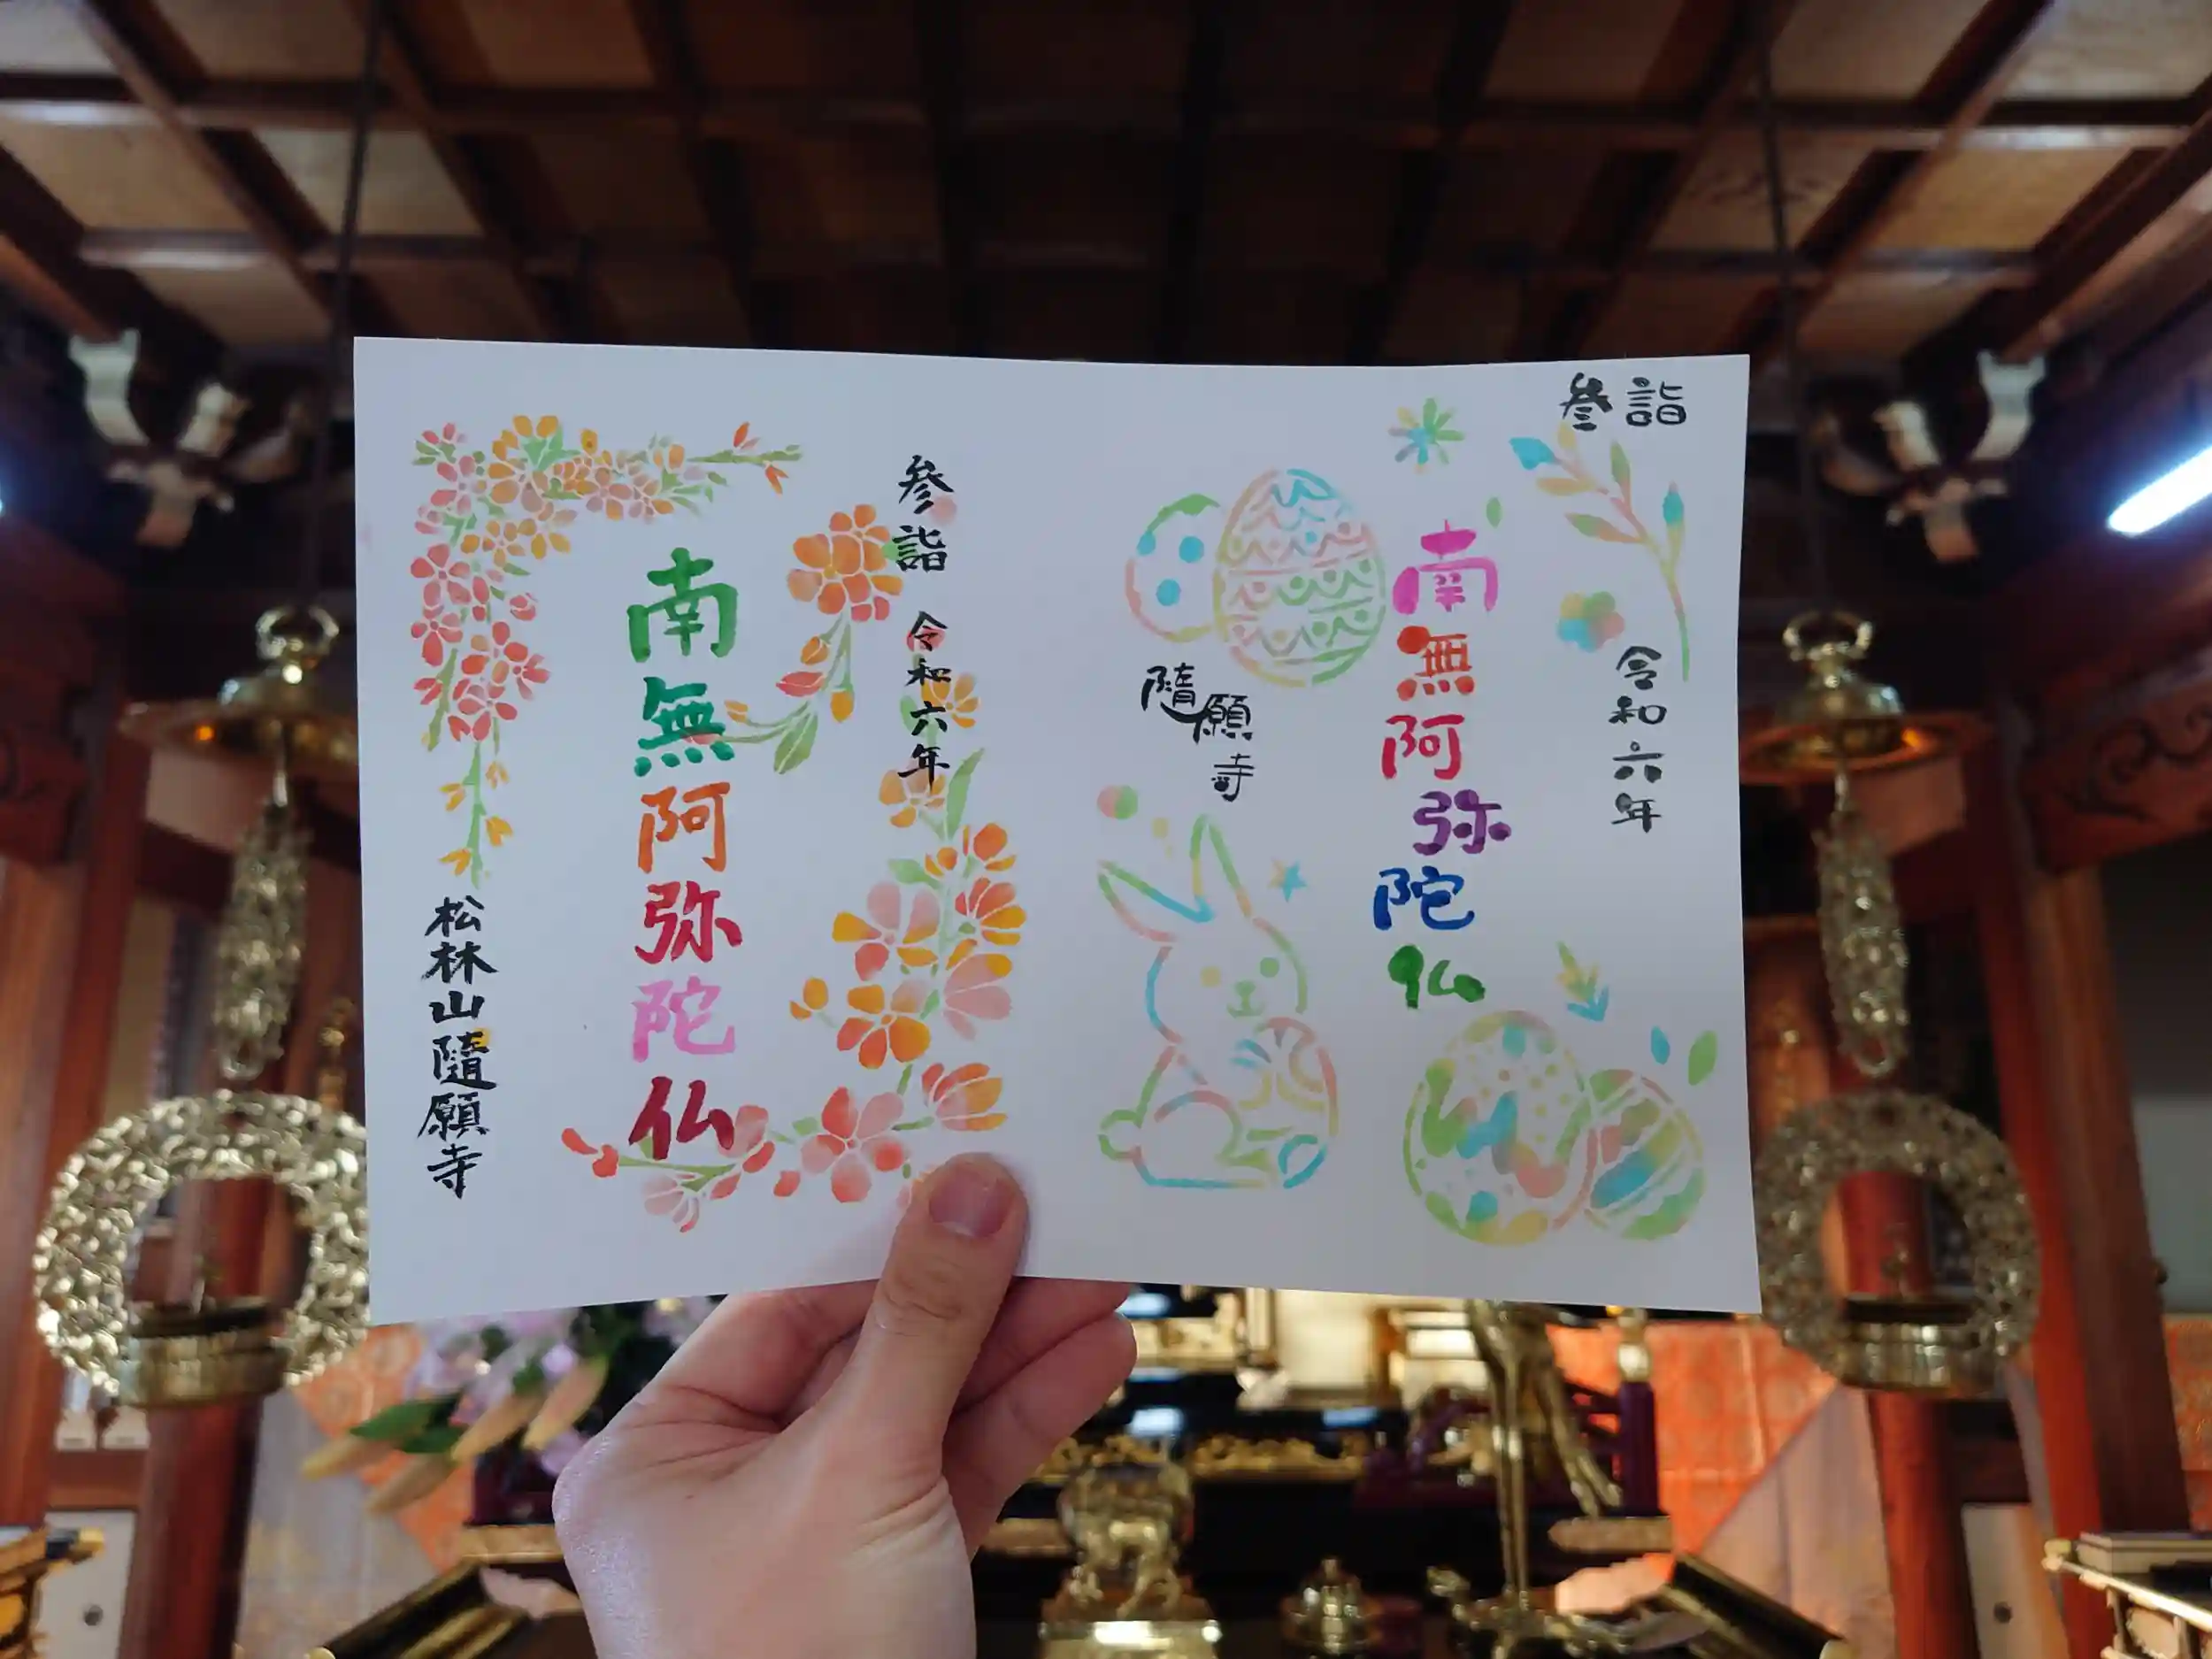 参詣
令和六年
南無阿弥陀仏
隨願寺
参詣 令和六年
南無阿弥陀仏
松林山隨願寺